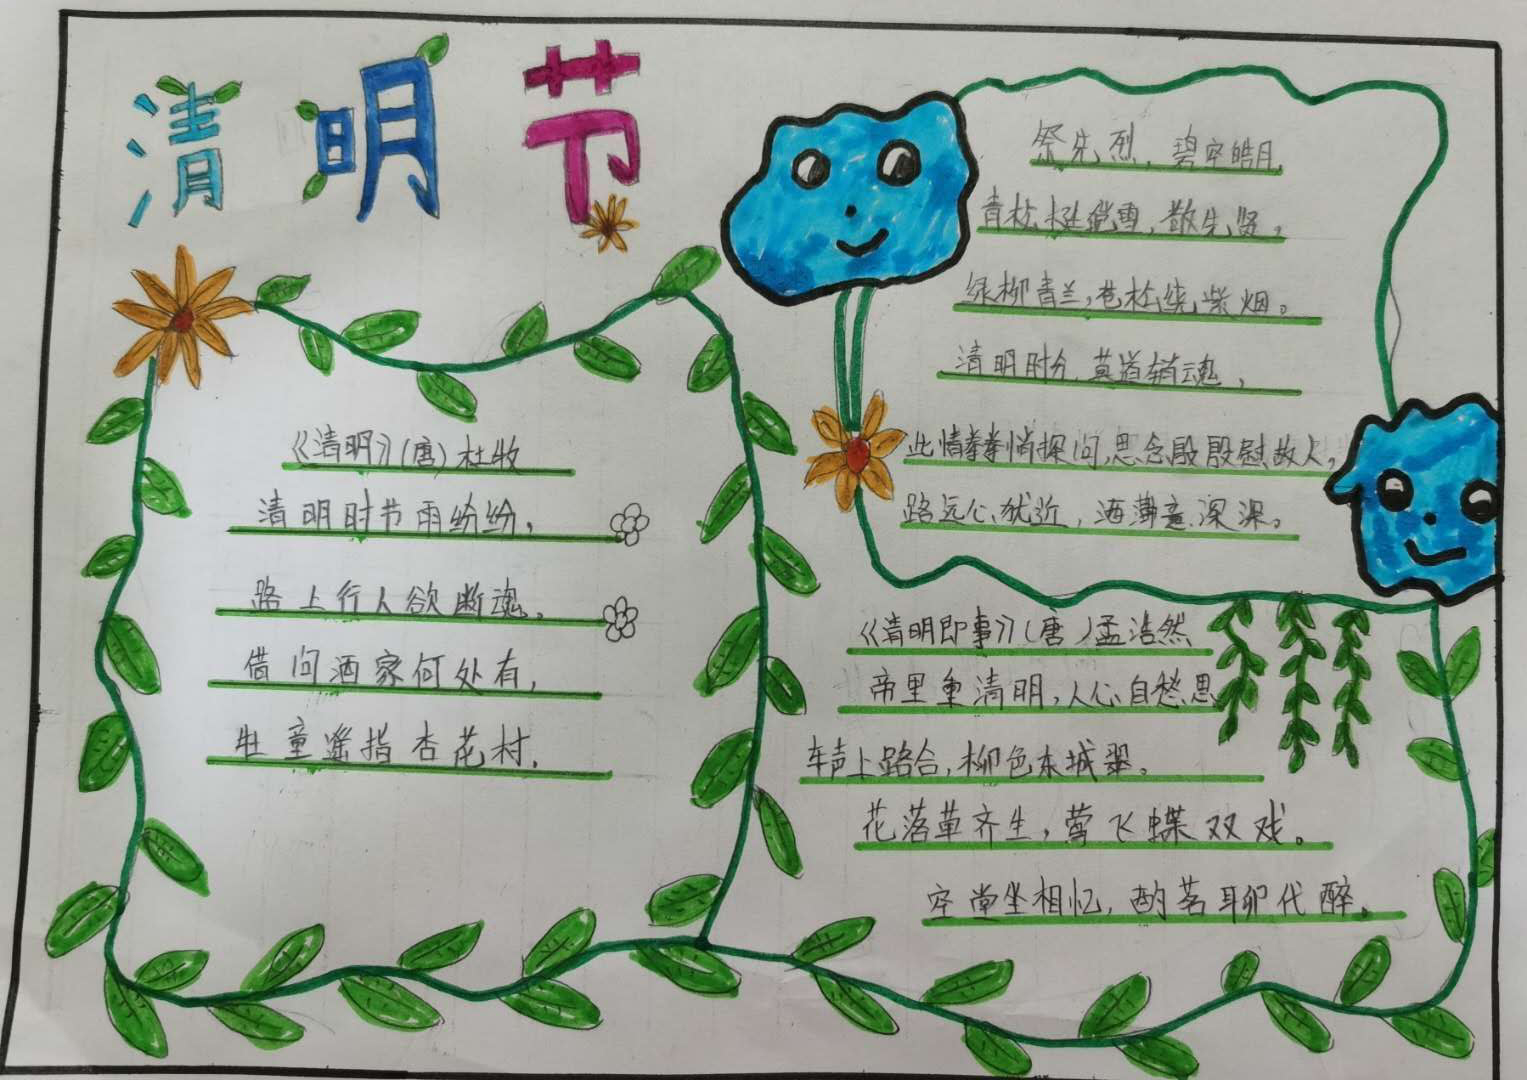 清明节
《清明》(唐)杜牧
清明时节雨纷纷,
路上行人欲断魂。
借问酒家何处有,
牡童遥指杏花村.
祭先烈,碧空皓月,
青松挺傲雪,敬先贤。
绿柳青兰,苍松绕紫烟。
清明时分,莫道销魂,
此情拳拳悄探问,思念殷殷慰故人,
路远心犹近,酒薄意深深。
《清明即事》(唐)孟浩然
帝里重清明,人心自愁思
车声上路合,柳色东城翠。
花落草齐生,莺飞蝶双戏。
空堂坐相忆,酌茗聊代醉。